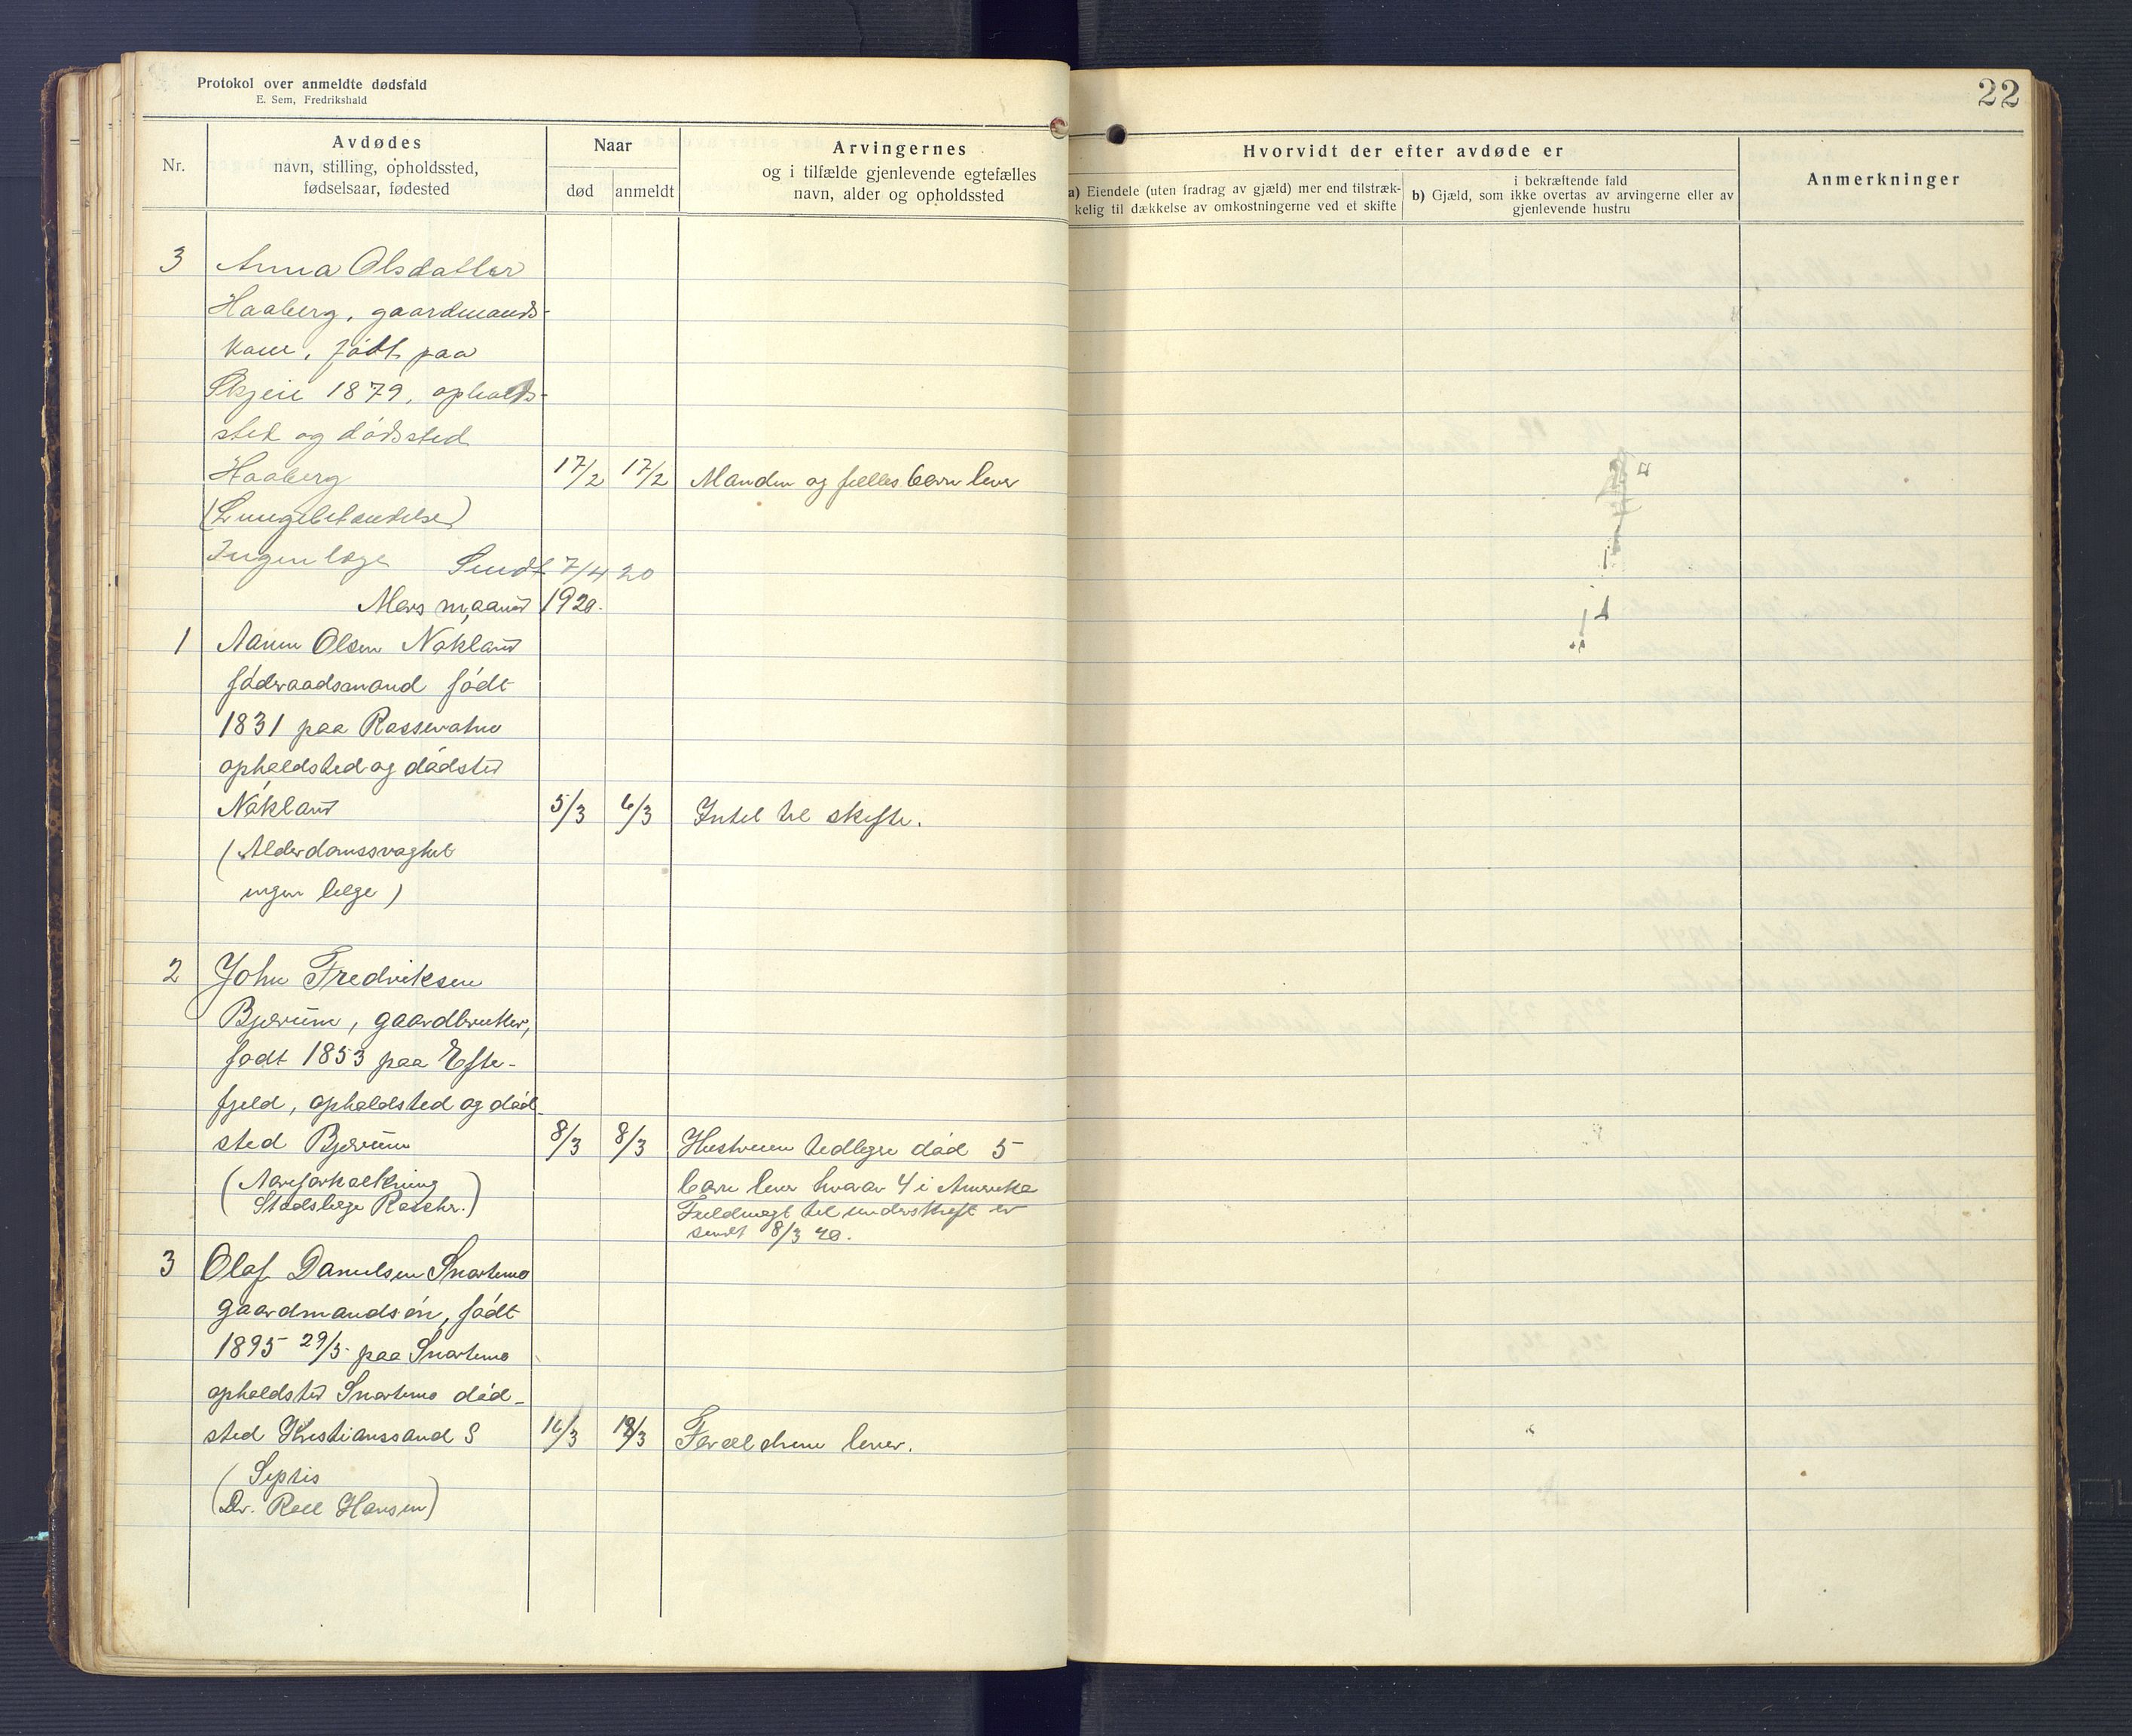 Protokol over anmeldte dødsfald
E. Sem, Fredrikshald
22
Nr.
Avdødes
navn, stilling, opholdssted,
fødselsaar, fødested
Naar
død
anmeldt
Arvingernes
og i tilfælde gjenlevende egtefælles
navn, alder og opholdssted
Hvorvidt der efter avdøde er
a) Eiendele (uten fradrag av gjæld) mer end tilstræk-
kelig til dækkelse av omkostningerne ved et skifte
i bekræftende fald
b) Gjæld, som ikke overtas av arvingerne eller av
gjenlevende hustru
Anmerkninger
3 Anna Olsdatter
Haaberg, gaardmands-
kone, født paa
Skjeie 1879, opholds-
sted og dødssted
Haaberg 17/2 17/2 Manden og fælles barn lever
(Lungebetændelse)
Ingen læge Sendt 7/4 20
Mars maaned 1920.
1 Aanen Olsen Nøkland
føderaadsmand født
1831 paa Rossevatne
opholdsted og dødsted
Nøkland 5/3 6/3 Intet til skifte.
(Alderdomssvaghet
ingen læge)
2 John Fredriksen
Bjærum, gaardbruker,
født 1853 paa Efte-
fjeld, opholdsted og død-
sted Bjærum 8/3 8/3 Hustruen tidligere død 5
barn lever hvorav 4 i Amerika
(Aareforkalkning
Stadslæge Raschr.)
Fuldmagt til underskrift er
sendt 8/3 20.
3 Olaf Danielsen Snartemo
gaardmandsøn, født
1895 29/5 paa Snartemo
opholdsted Snartemo død-
sted Kristianssand S 16/3 18/3 Forældrene lever.
(Septis
Dr. Roll Hansen)